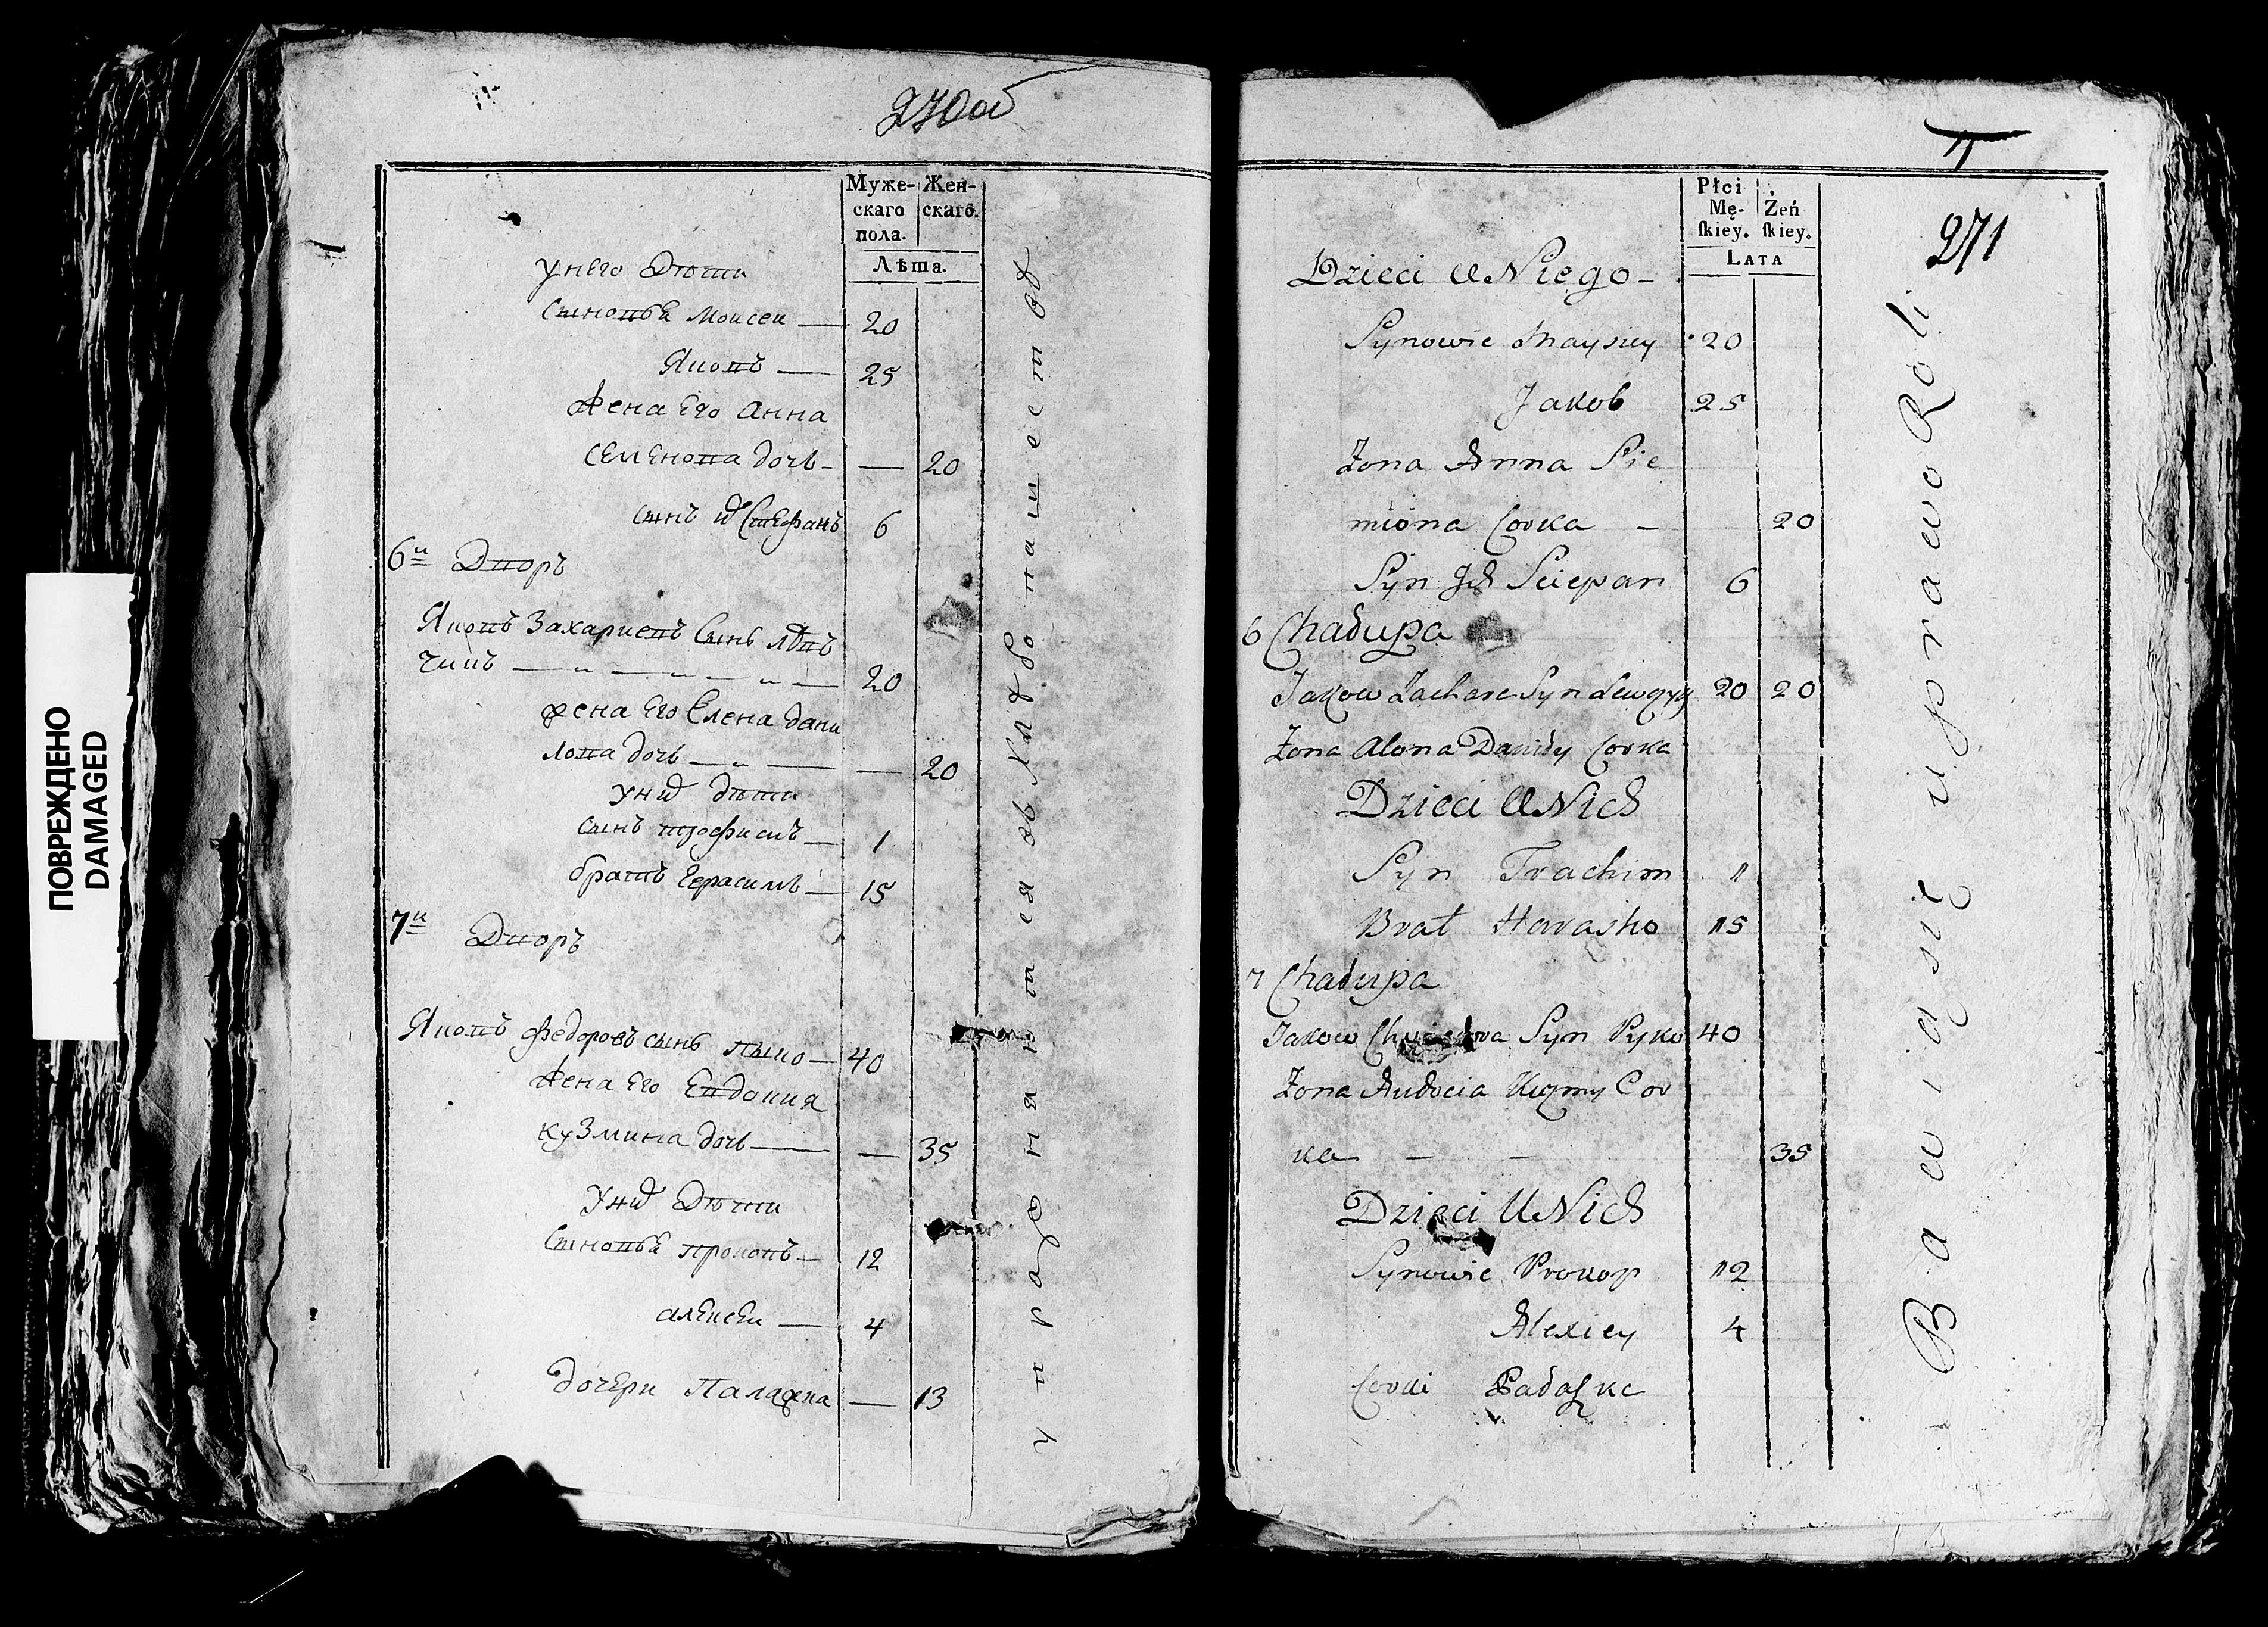 ПОВРЕЖДЕНО
DAMAGED
270об
Муже-
скаго
пола.
Жен-
скаго.
Лѣта.
у нево дѣти
сыновья Моисеи — 20
Яковъ — 25
жена Его Анна
Семенова дочь — — 20
сынъ Стефанъ 6
6й Дворъ
Яковъ Захариевъ сынъ
— 20
жена Его Елена Дани
лова дочь — — 20
у них дѣти
сынъ Трофимъ — 1
братъ Герасимъ — 15
7й Дворъ
Яковъ Федоровъ сынъ Пыко — 40
жена Его Евдокия
Кузмина дочь — — 35
у них дѣти
сыновья Прокопъ — 12
Алексеи — 4
дочери Палажка — 13
упражняются в хлебопашестве
271
Płci
Mę-
skiey.
Żeń
skiey.
LATA
Dzieci u Niego —
Synowie Maysiey 20
Jakob 25
Żona Anna Sie
miona Corka — 20
Syn Ich Sciepan 6
6 Chadupa
Jakow Zachare Syn 20 20
Żona Alona Daniły Corka
Dzieci u Nich
Syn Trachim 1
Brat Harasko 15
7 Chadupa
Jakow Syn Pyko 40
Żona Audocia Kuzmy Cor
ka — — 35
Dzieci u Nich
Synowie Prokop 12
Alexiey 4
Corki Padaszke
Bawią się uprawo Roli